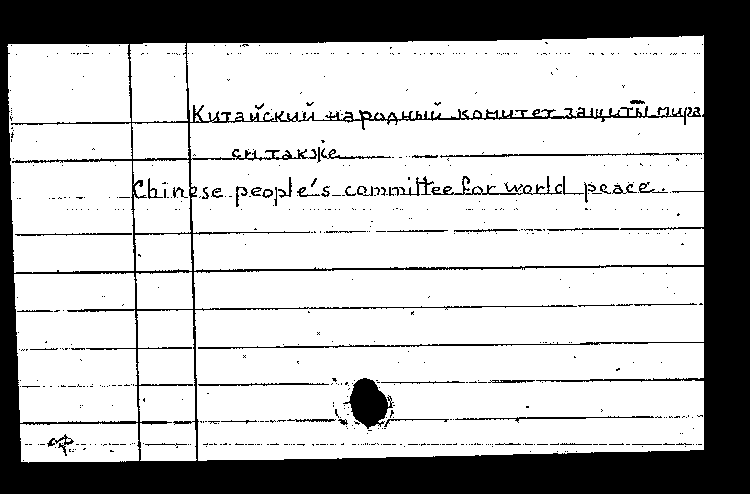 Китайский народный комитет защиты мира
см. также
Chinese people's committee for world peace.